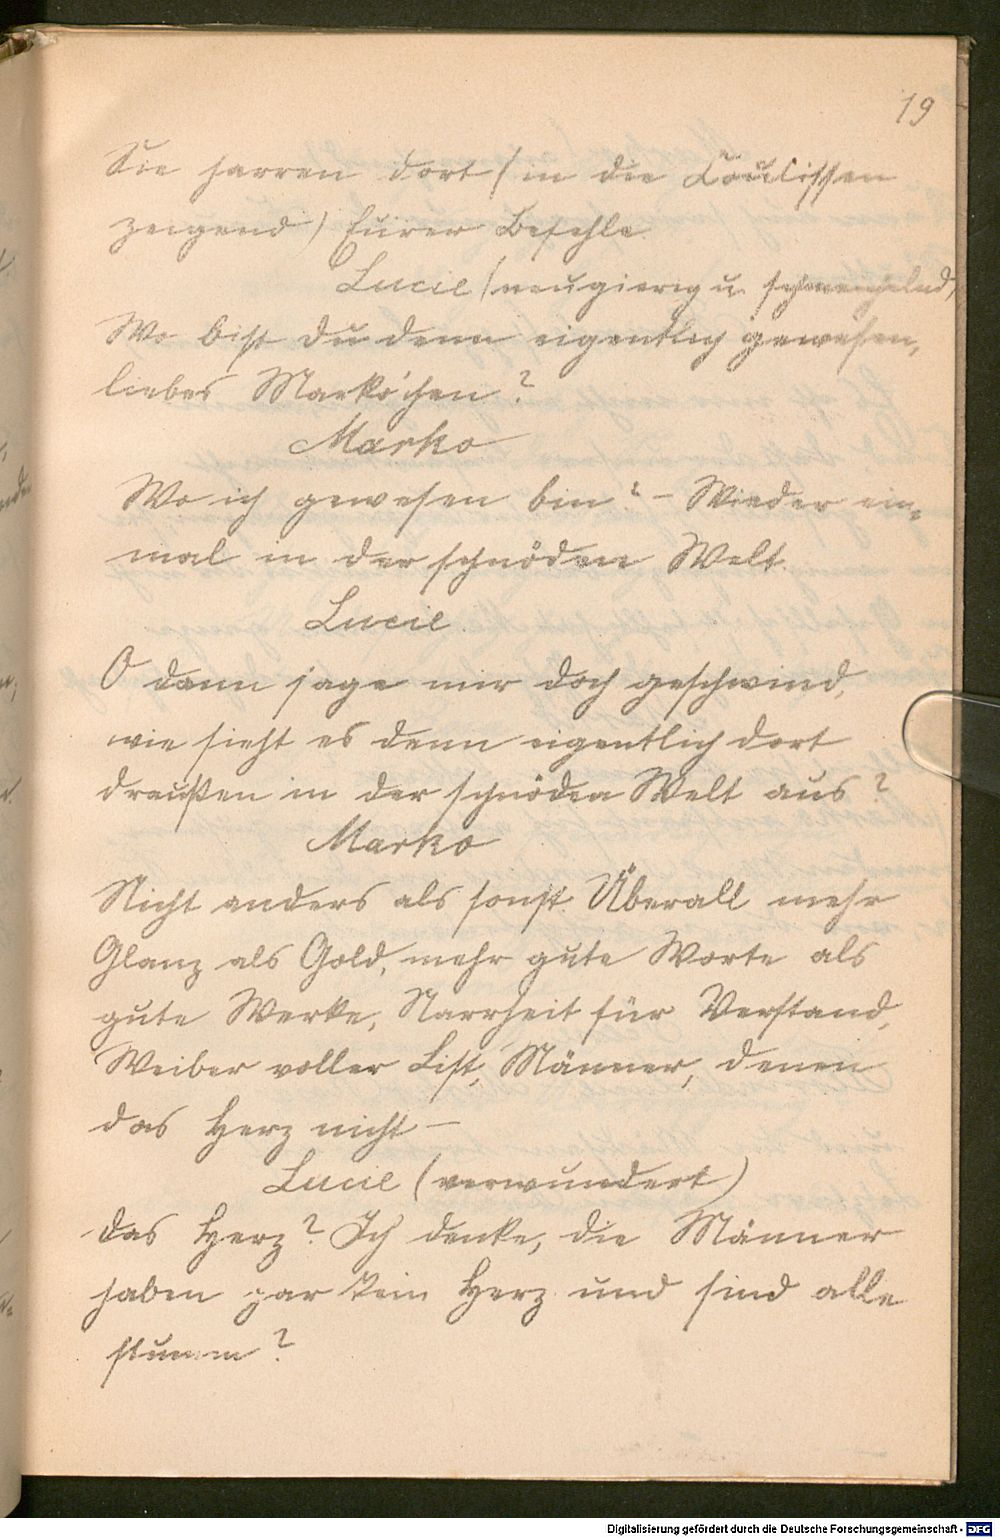 19
Sie harren dort (in die Coulissen
zeigend) Eurer Befehle.
Lucie (neugierig u. schmeichelnd)
Wo bist du denn eigentlich gewesen,
liebes Marko'chen?
Marko
Wo ich gewesen bin? – Wieder ein-
mal in der schnöden Welt.
Lucie.
O dann sage mir doch geschwind,
wie sieht es denn eigentlich dort
draußen in der schnöden Welt aus?
Marko
Nicht anders als sonst. Überall mehr
Glanz als Gold, mehr gute Worte als
gute Werke, Narrheit für Verstand,
Weiber voller List, Männer, denen
das Herz nicht –
Lucie (verwundert)
Das Herz? Ich denke, die Männer
haben gar kein Herz und sind alle
stumm?
Digitalisierung gefördert durch die Deutsche Forschungsgemeinschaft - DFG